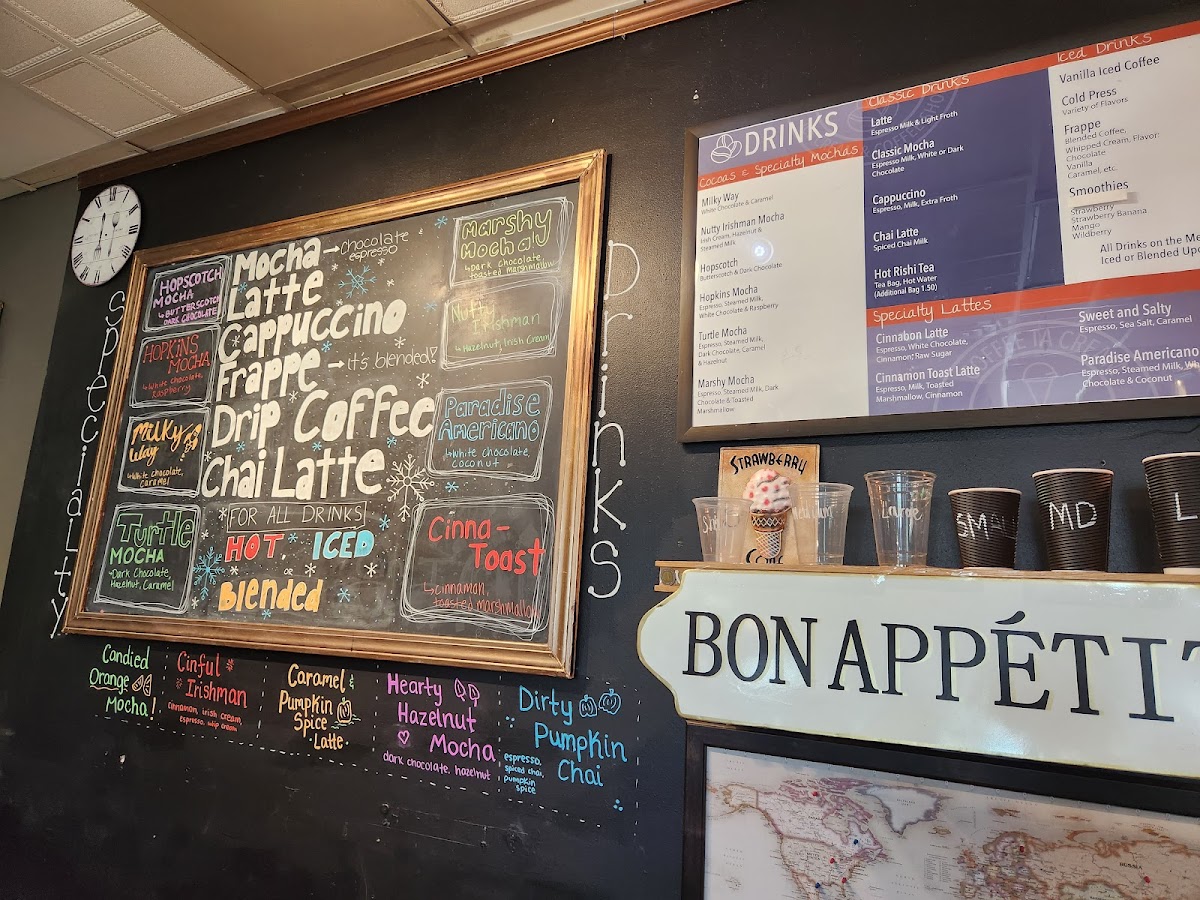 Specialty
Drinks
HOPSCOTCH
MOCHA
↳BUTTERSCOTCH
DARK CHOCOLATE
HOPKINS
MOCHA
↳White chocolate,
Raspberry
Milky
Way
↳White chocolate,
caramel
Turtle
MOCHA
↳Dark Chocolate,
Hazelnut, Caramel
Mocha→chocolate
espresso
Latte
Cappuccino
Frappe→it's blended!
Drip Coffee
Chai Latte
FOR ALL DRINKS
HOT, ICED
OR
Blended
Marshy
Mocha
↳Dark chocolate,
toasted marshmallow
Nutty
Irishman
↳Hazelnut, Irish Cream
Paradise
Americano
↳White chocolate,
coconut
Cinna-
Toast
↳cinnamon,
toasted marshmallow
Candied
Orange
Mocha!
Cinful
Irishman
cinnamon, irish cream,
espresso, whip cream
Caramel &
Pumpkin
Spice
Latte
Hearty
Hazelnut
Mocha
dark chocolate, hazelnut
Dirty
Pumpkin
Chai
espresso,
spiced chai,
pumpkin
spice
DRINKS
Cocoas & Specialty Mochas
Milky Way
White Chocolate & Caramel
Nutty Irishman Mocha
Irish Cream, Hazelnut &
Steamed Milk
Hopscotch
Butterscotch & Dark Chocolate
Hopkins Mocha
Espresso, Steamed Milk,
White Chocolate & Raspberry
Turtle Mocha
Espresso, Steamed Milk,
Dark Chocolate, Caramel
& Hazelnut
Marshy Mocha
Espresso, Steamed Milk, Dark
Chocolate & Toasted
Marshmallow
Classic Drinks
Latte
Espresso Milk & Light Froth
Classic Mocha
Espresso Milk, White or Dark
Chocolate
Cappuccino
Espresso, Milk, Extra Froth
Chai Latte
Spiced Chai Milk
Hot Rishi Tea
Tea Bag, Hot Water
(Additional Bag 1.50)
Iced Drinks
Vanilla Iced Coffee
Cold Press
Variety of Flavors
Frappe
Blended Coffee,
Whipped Cream, Flavor:
Chocolate
Vanilla
Caramel, etc.
Smoothies
Strawberry
Strawberry Banana
Mango
Wildberry
All Drinks on the Me
Iced or Blended Upo
Specialty Lattes
Cinnabon Latte
Espresso, White Chocolate,
Cinnamon, Raw Sugar
Cinnamon Toast Latte
Espresso, Milk, Toasted
Marshmallow, Cinnamon
Sweet and Salty
Espresso, Sea Salt, Caramel
Paradise Americano
Espresso, Steamed Milk, Wh
Chocolate & Coconut
STRAWBERRY
Large
SM
MD
L
BON APPÉTIT
RUSSIA